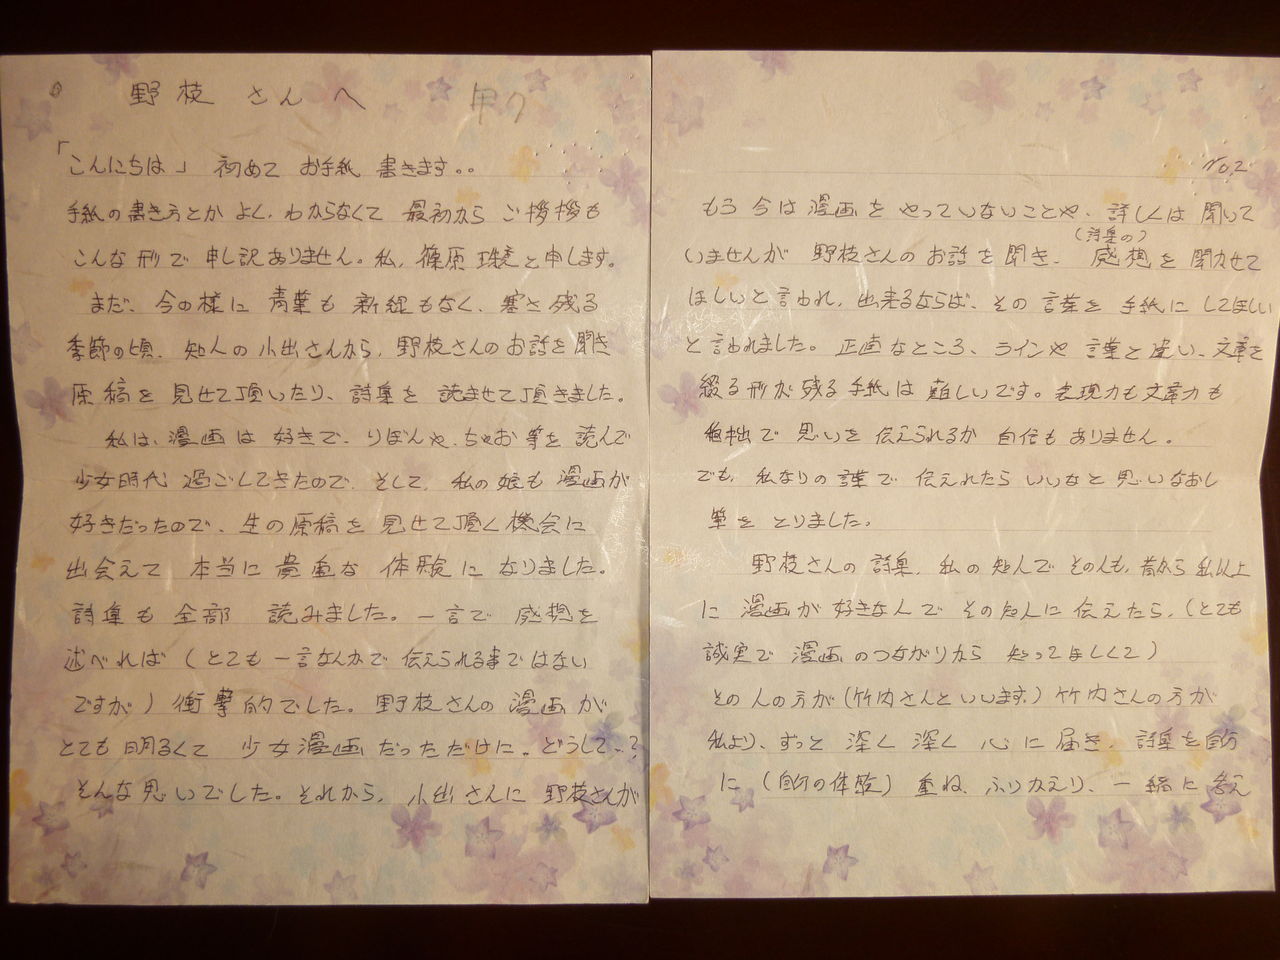 野枝さんへ
「こんにちは」初めてお手紙書きます。。
手紙の書き方とかよく、わからなくて最初からご挨拶も
こんな形で申し訳ありません。私、篠原 と申します。
まだ、今の様に青葉も新緑もなく、寒さ残る
季節の頃、知人の小出さんから、野枝さんのお話を聞き
原稿を見せて頂いたり、詩集を読ませて頂きました。
私は、漫画は好きで、りぼんや、ちゃお等を読んで
少女時代過ごしてきたので、そして、私の娘も漫画が
好きだったので、生の原稿を見せて頂く機会に
出会えて本当に貴重な体験になりました。
詩集も全部読みました。一言で感想を
述べれば(とても一言なんかで伝えられる事ではない
ですが)衝撃的でした。野枝さんの漫画が
とても明るくて少女漫画だっただけに。どうして..?
そんな思いでした。それから、小出さんに野枝さんが
No.2
もう今は漫画をやっていないことや、詳しくは聞いて
いませんが野枝さんのお話を聞き、(詩集の)感想を聞かせて
ほしいと言われ、出来るならば、その言葉を手紙にしてほしい
と言われました。正直なところ、ラインや言葉と違い、文章を
綴る形が残る手紙は難しいです。表現力も文章力も
稚拙で思いを伝えられるか自信もありません。
でも、私なりの で伝えれたらいいなと思いなおし
筆をとりました。
野枝さんの詩集、私の知人でその人も、昔から私以上
に漫画が好きな人でその知人に伝えたら、(とても
誠実で漫画のつながりから知ってほしくて)
その人の方が(竹内さんといいます)竹内さんの方が
私より、ずっと深く深く心に届き、詩集を自分
に(自分の体験)重ね、ふりかえり、一緒に考え